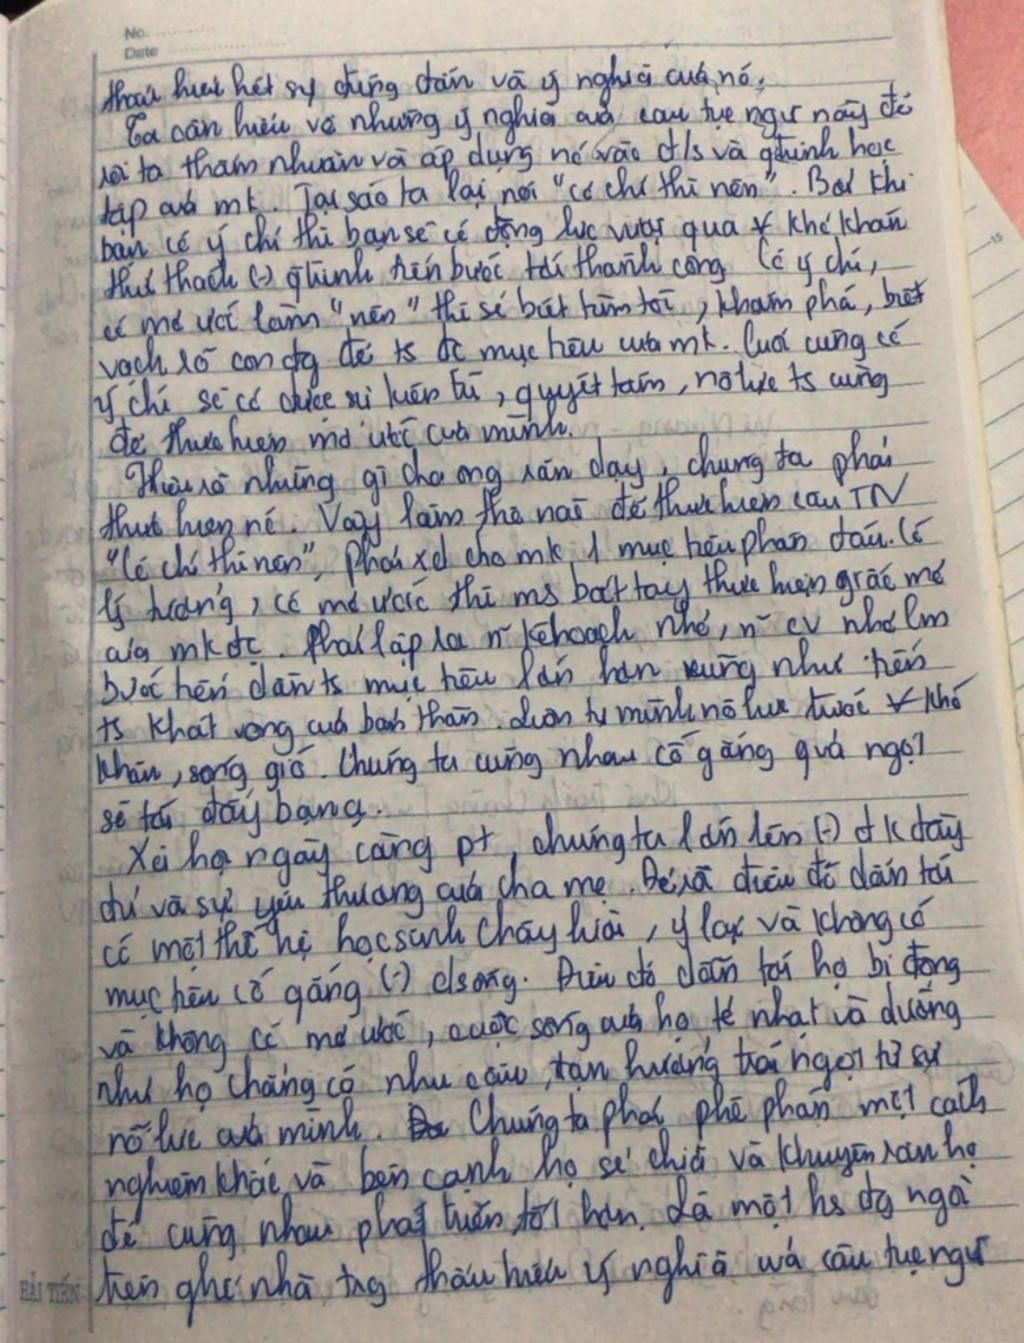 No. ..........
Date ....................
thấu hiểu hết sự đúng đắn và ý nghĩa của nó.
Ta cần hiểu về những ý nghĩa của câu tục ngữ này để
rồi ta thấm nhuần và áp dụng nó vào đ/s và qtrình học
tập của mk. Tại sao ta lại nói "có chí thì nên". Bởi khi
bạn có ý chí thì bạn sẽ có động lực vượt qua ∀ khó khăn
thử thách (-) qtrình tiến bước tới thành công. Có ý chí,
có mơ ước làm "nên" thì sẽ biết tìm tòi, khám phá, biết
vạch rõ con đg để ts đc mục tiêu của mk. Cuối cùng có
ý chí sẽ có được sự kiên trì, quyết tâm, nỗ lực ts cùng
để thực hiện mơ ước của mình.
Hiểu rõ những gì cha ông răn dạy, chúng ta phải
thực hiện nó. Vậy làm thế nào để thực hiện câu TN
"Có chí thì nên", phải xđ cho mk 1 mục tiêu phấn đấu. Có
lý tưởng, có mơ ước thì ms bắt tay thực hiện giấc mơ
của mk đc. Phải lập ra n~ kế hoạch nhỏ, n~ cv nhỏ lm
bước tiến dần ts mục tiêu lớn hơn cũng như tiến
ts khát vọng của bản thân. Luôn tự mình nỗ lực trước ∀ khó
khăn, sóng gió. Chúng ta cùng nhau cố gắng quả ngọt
sẽ tới đáy bạn ạ.
Xã hội ngày càng pt, chúng ta lớn lên (-) đk đầy
đủ và sự yêu thương của cha mẹ. Để rồi điều đó dẫn tới
có một thế hệ học sinh chây lười, ỷ lại và không có
mục tiêu cố gắng (-) csống. Điều đó dẫn tới họ bị động
và không có mơ ước, cuộc sống của họ tẻ nhạt và dường
như họ chẳng có nhu cầu, tận hưởng trái ngọt từ sự
nỗ lực của mình. Chúng ta phải phê phán một cách
nghiêm khắc và bên cạnh họ sẻ chia và khuyên răn họ
để cùng nhau phát triển tốt hơn. Là một hs đg ngồi
trên ghế nhà trg thấu hiểu ý nghĩa của câu tục ngữ
HẢI TIẾN